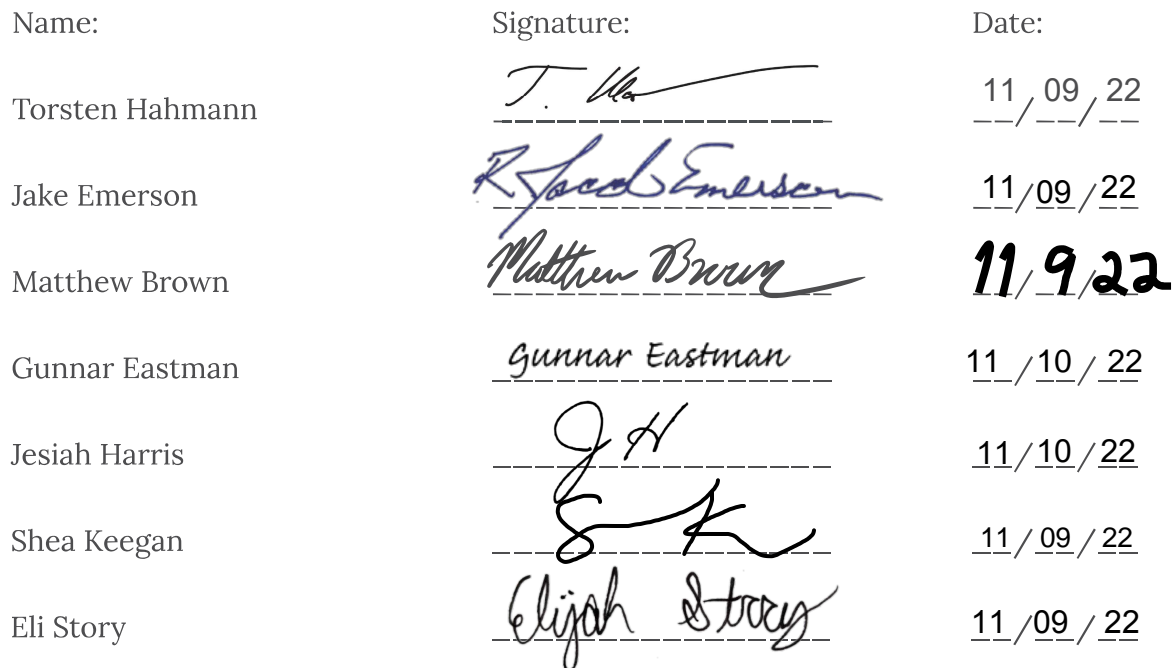 Name: Signature: Date:
Torsten Hahmann T. 11/09/22
Jake Emerson R Jacob Emerson 11/09/22
Matthew Brown Matthew Brown 11/9/22
Gunnar Eastman Gunnar Eastman 11/10/22
Jesiah Harris J H 11/10/22
Shea Keegan S K 11/09/22
Eli Story Elijah Story 11/09/22